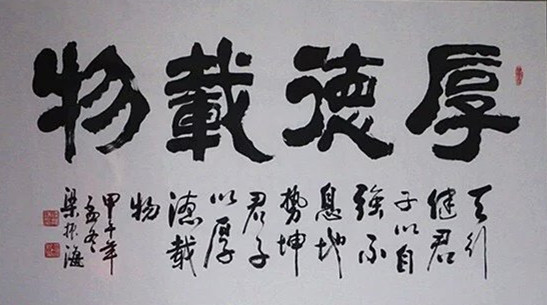 厚德載物
天行
健君
子以自
強不
息地
勢坤
君子
以厚
德載
物
甲午年
孟冬
梁振海